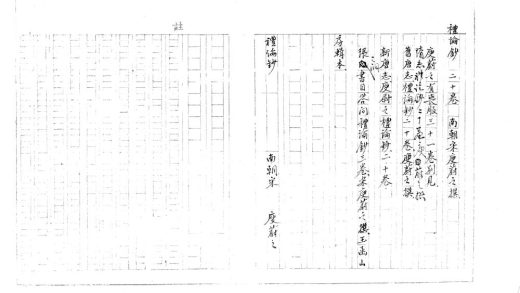 禮論鈔 二十卷 南朝宋庾蔚之撰
庾蔚之有喪服三十一卷別見
隋志禮論鈔二十卷庾蔚之撰
舊唐志禮論鈔二十卷庾蔚之撰
新唐志庾蔚之禮論鈔二十卷
張之洞書目答問禮論鈔三卷宋庾蔚之撰玉函山
房輯本
禮論鈔 南朝宋 庾蔚之
註